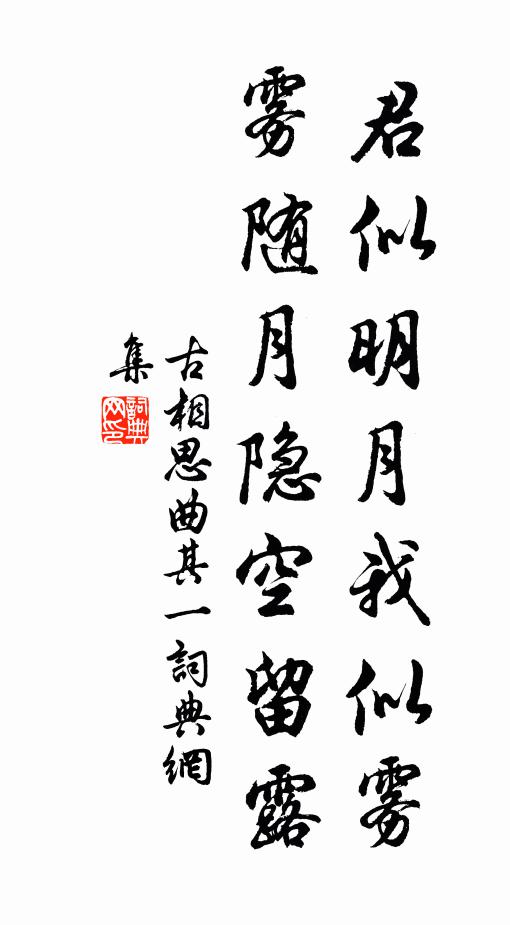 君似明月我似雾
雾随月隐空留露
古相思曲其一詞典網
集
詞典
网印